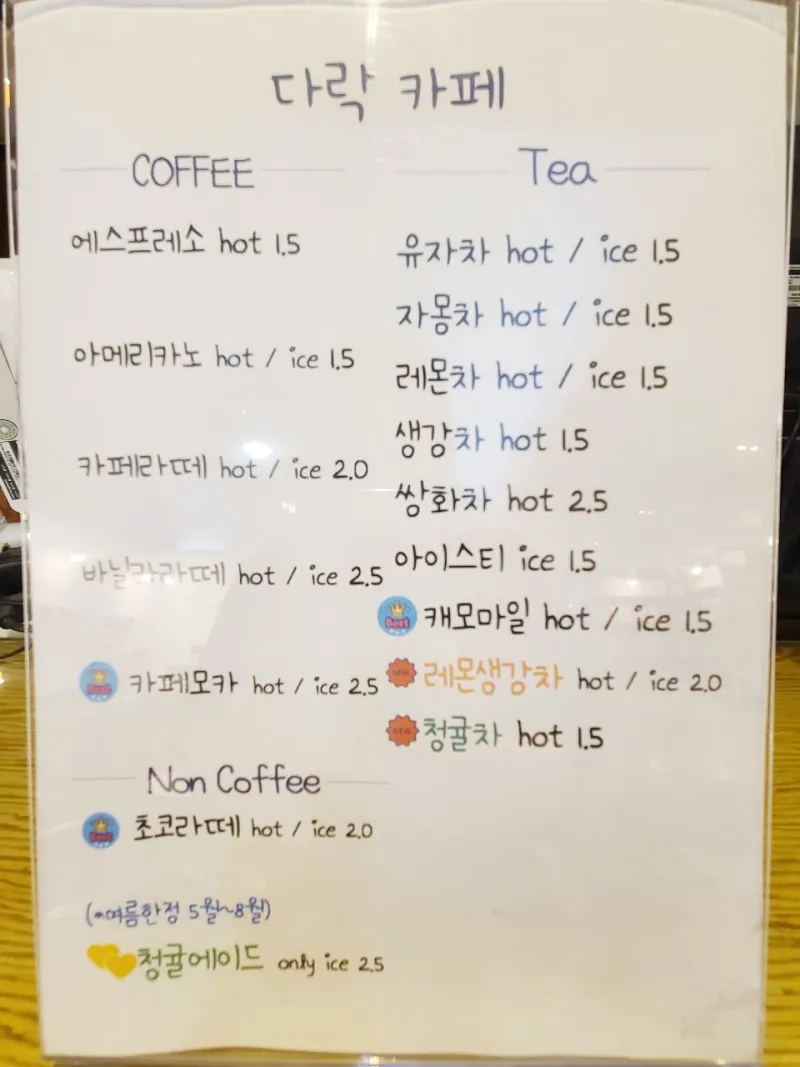 다락 카페
COFFEE
에스프레소 hot 1.5
아메리카노 hot / ice 1.5
카페라떼 hot / ice 2.0
바닐라라떼 hot / ice 2.5
Best 카페모카 hot / ice 2.5
Non Coffee
Best 초코라떼 hot / ice 2.0
(*여름한정 5월~8월)
청귤에이드 only ice 2.5
Tea
유자차 hot / ice 1.5
자몽차 hot / ice 1.5
레몬차 hot / ice 1.5
생강차 hot 1.5
쌍화차 hot 2.5
아이스티 ice 1.5
Best 캐모마일 hot / ice 1.5
NEW 레몬생강차 hot / ice 2.0
NEW 청귤차 hot 1.5